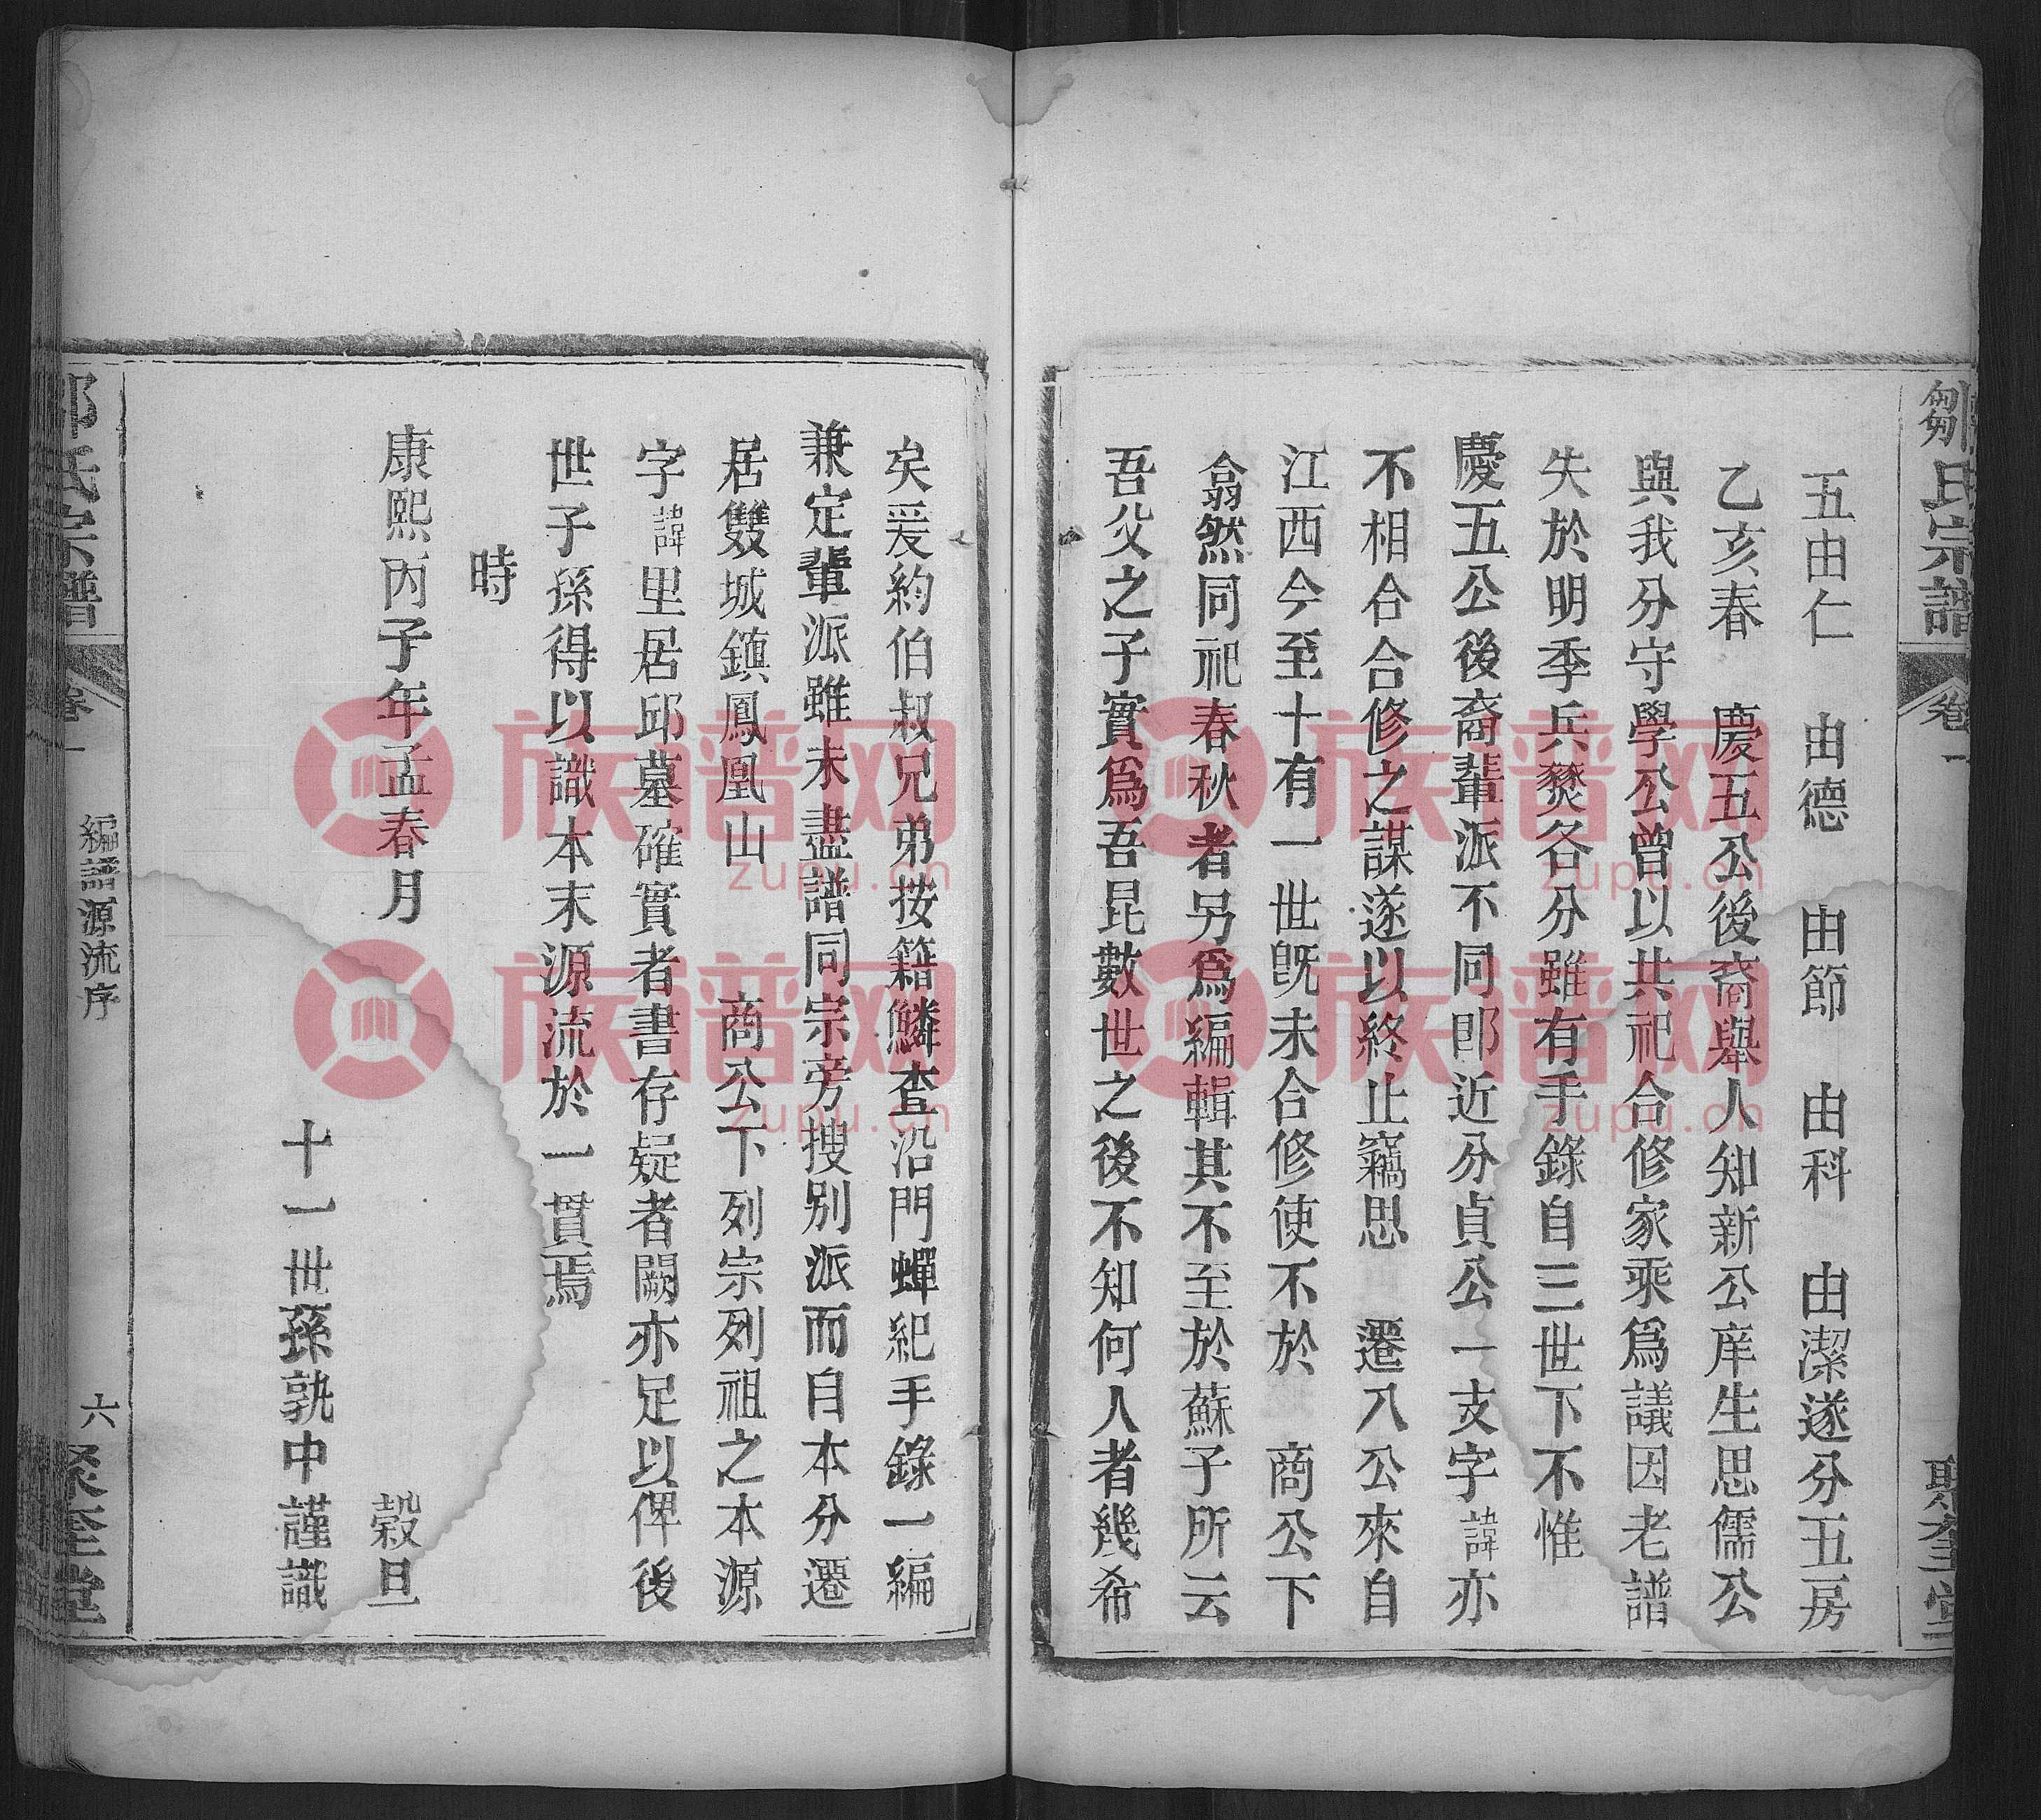 鄒氏宗譜
卷一
聚奎堂
五由仁　由德　由節　由科　由潔遂分五房
乙亥春　慶五公後裔舉人知新公庠生思儒公
與我分守學公曾以共祀合修家乘爲議因老譜
失於明季兵燹各分雖有手錄自三世下不惟
慶五公後裔輩派不同卽近分貞公一支字諱亦
不相合合修之謀遂以終止竊思　遷八公來自
江西今至十有一世旣未合修使不於　商公下
翕然同祀春秋者另爲編輯其不至於蘇子所云
吾父之子實爲吾昆數世之後不知何人者幾希
矣爰約伯叔兄弟按籍鱗查沿門蟬紀手錄一編
兼定輩派雖未盡譜同宗旁搜別派而自本分遷
居雙城鎮鳳凰山　商公下列宗列祖之本源
字諱里居邱墓確實者書存疑者闕亦足以俾後
世子孫得以識本末源流於一貫焉
時
康熙丙子年孟春月　穀旦
十一世孫孰中謹識
氏宗譜
卷一
編譜源流序
六
聚奎堂
族譜网
zupu.cn
族譜网
zupu.cn
族譜网
zupu.cn
族譜网
zupu.cn